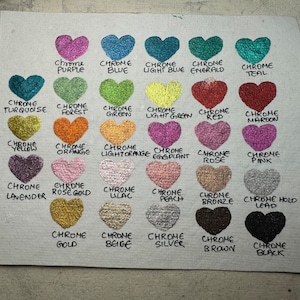 CHROME PURPLE
CHROME BLUE
CHROME LIGHT BLUE
CHROME EMERALD
CHROME TEAL
CHROME TURQUOISE
CHROME FOREST
CHROME GREEN
CHROME LIGHT GREEN
CHROME RED
CHROME MAROON
CHROME YELLOW
CHROME ORANGE
CHROME LIGHT ORANGE
CHROME EGGPLANT
CHROME ROSE
CHROME PINK
CHROME LAVENDER
CHROME ROSE GOLD
CHROME LILAC
CHROME PEACH
CHROME BRONZE
CHROME HOLO LEAD
CHROME GOLD
CHROME BEIGE
CHROME SILVER
CHROME BROWN
CHROME BLACK